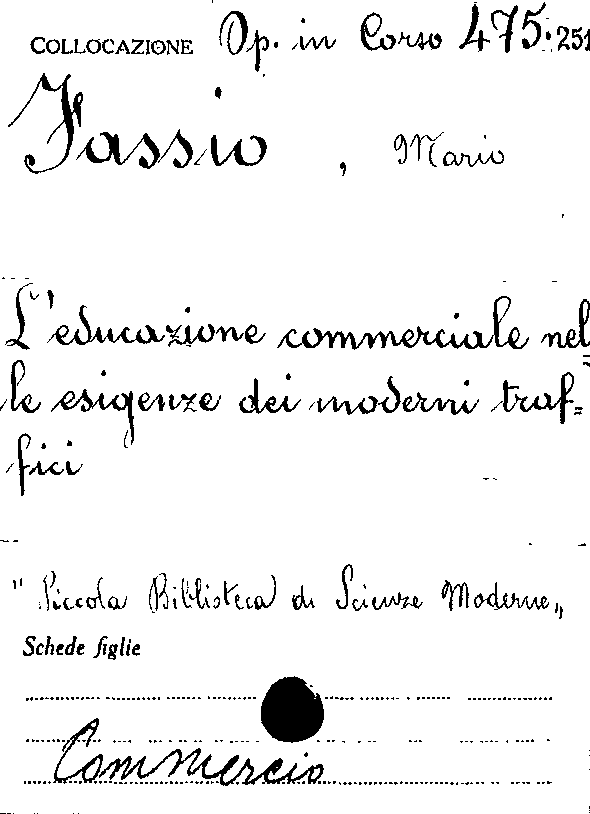 COLLOCAZIONE Op. in Corso 475.251
Fassio, Mario
L'educazione commerciale nel
le esigenze dei moderni traf=
fici
"Piccola Biblioteca di Scienze Moderne„
Schede figlie
Commercio